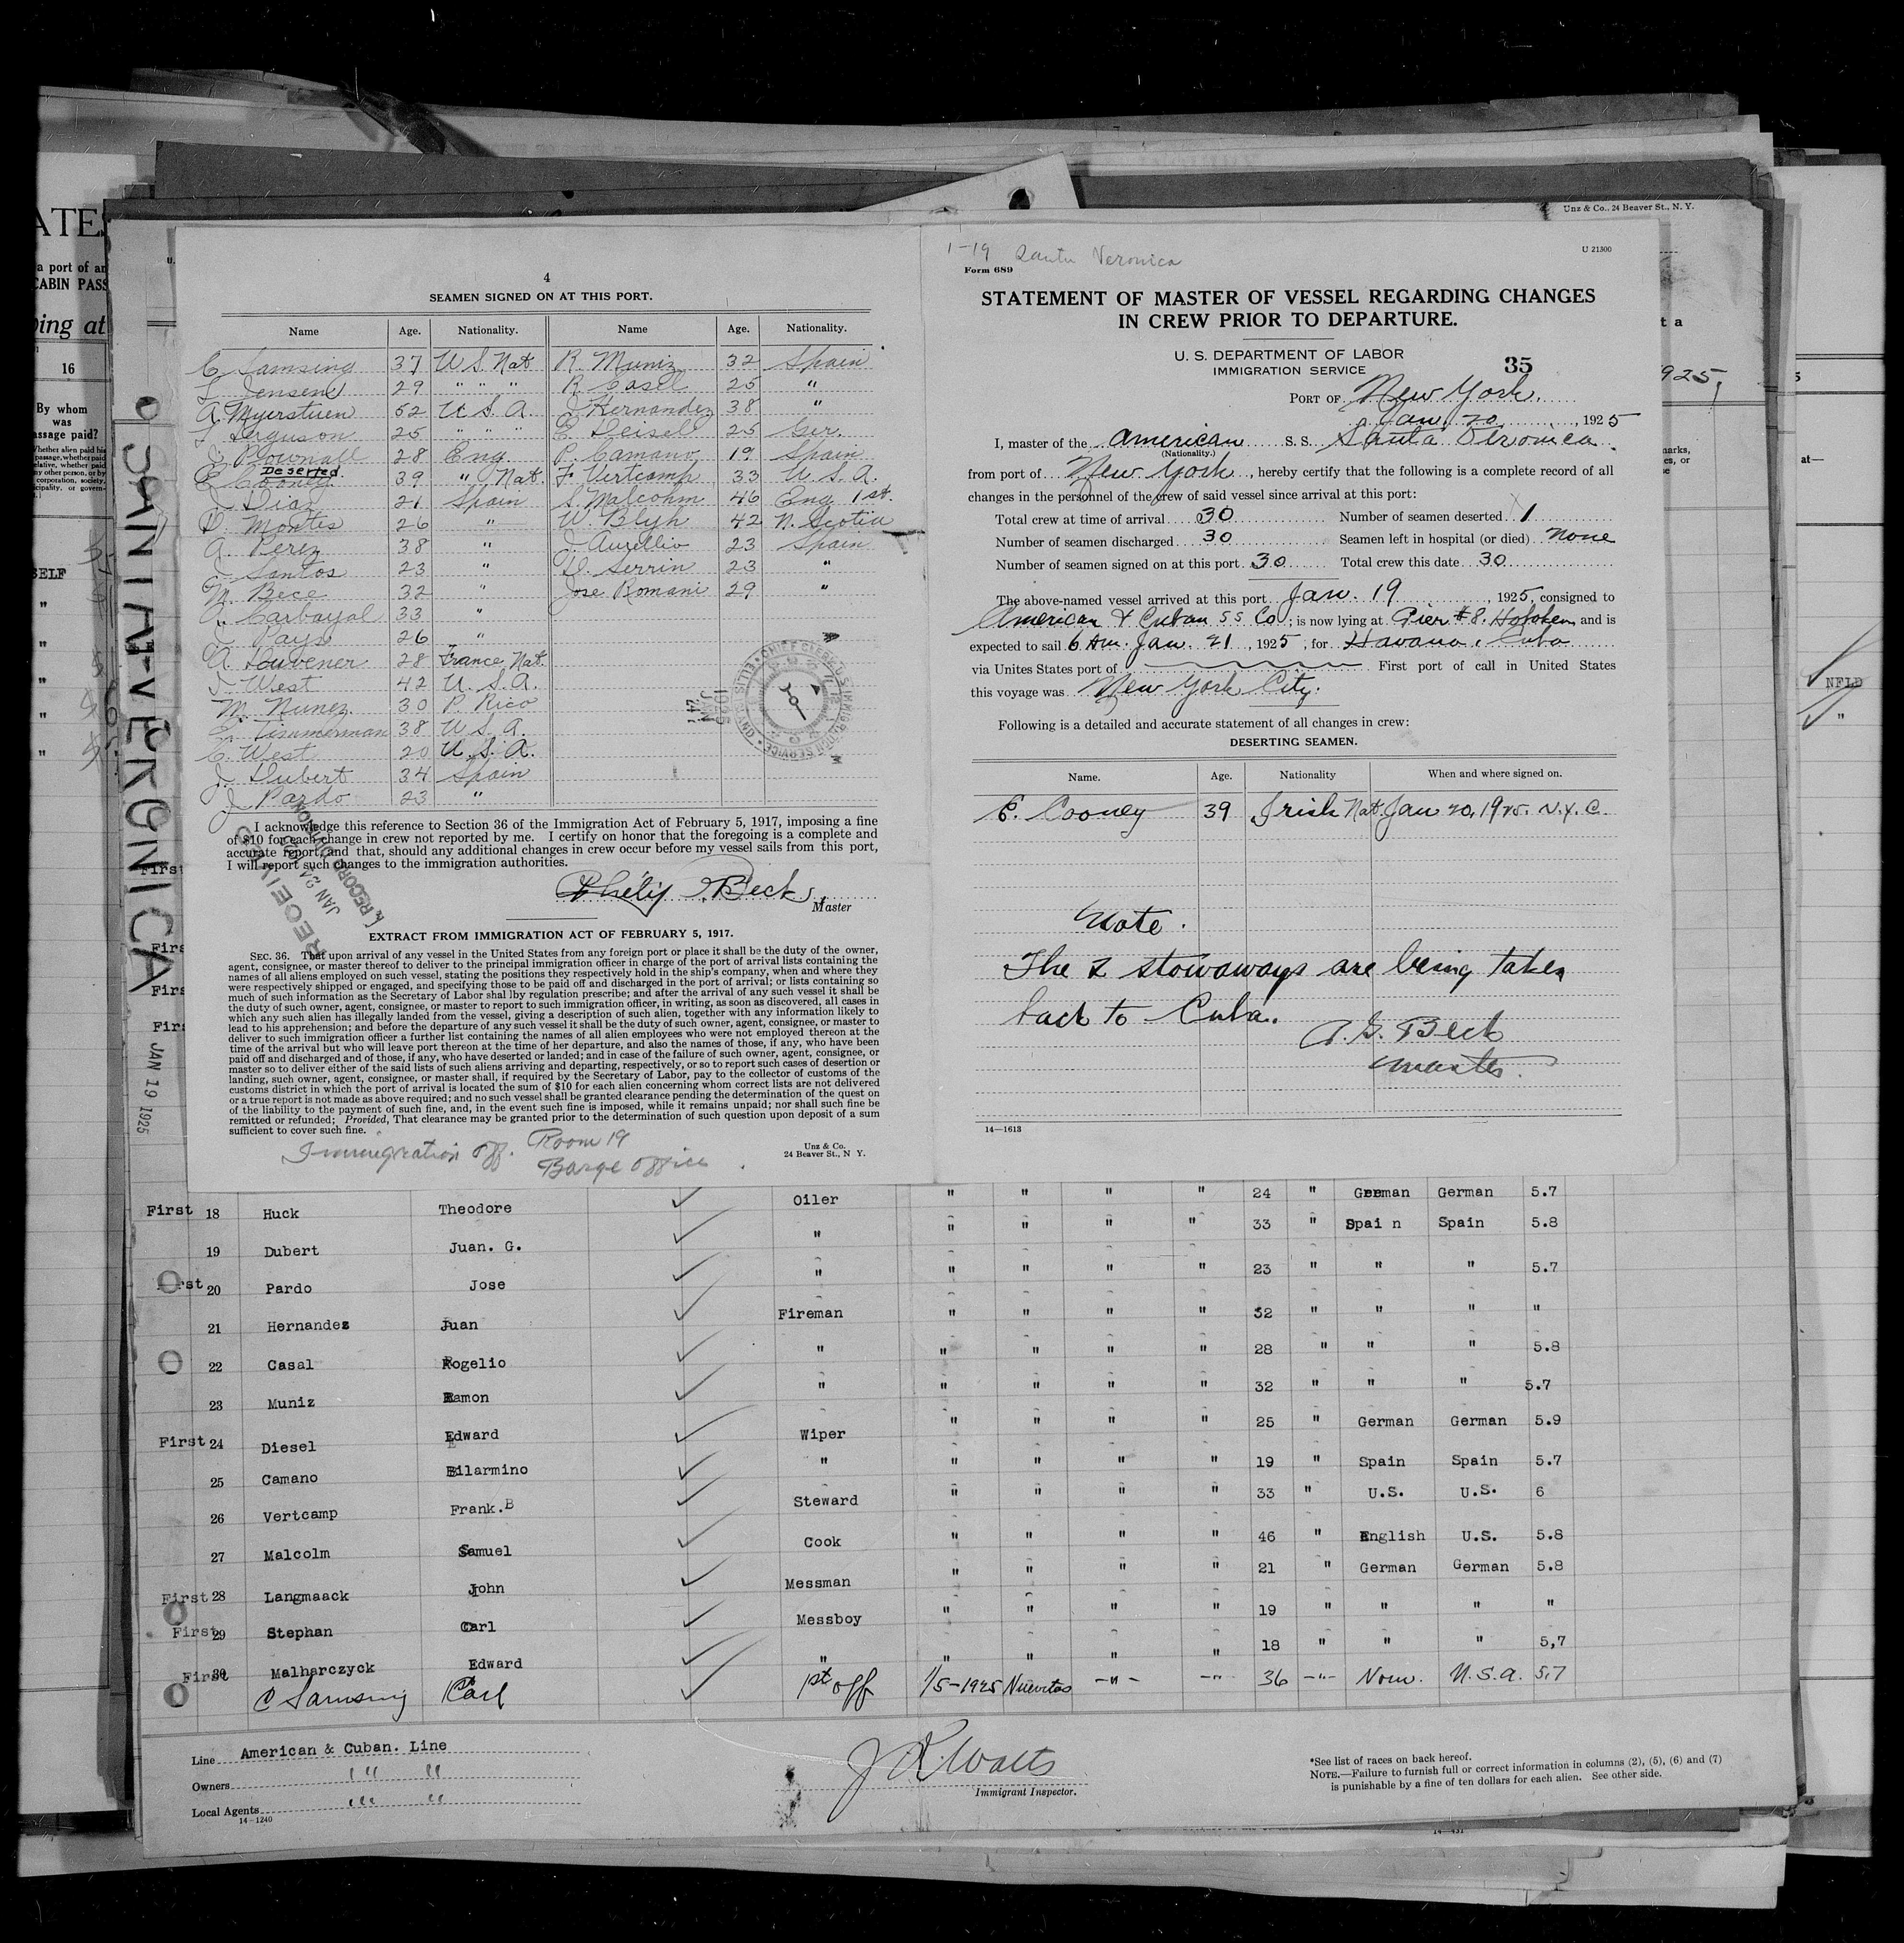 Unz & Co., 24 Beaver St., N. Y.
ATES
a port of
CABIN PASS
ing at
16
By whom
was
assage paid?
SELF
"
"
"
"
"
SANTA-VERONICA
JAN 19 1925
4
SEAMEN SIGNED ON AT THIS PORT.
Name Age. Nationality. Name Age. Nationality.
C Samsing 37 U S. Nat R. Muniz 32 Spain
L Jensen 29 " " " R Casel 25 "
A. Myerstuen 52 U. S. A. J Hernandez 38 "
J Ferguson 25 " " " E Deisel 25 Ger.
J Pownall 28 Eng. P. Camano 19 Spain
Deserted
E Cooney 39 " Nat. F. Vertcamp 33 U. S. A.
J Diaz 21 Spain S. Malcohm 46 Eng 1st.
D. Montes 26 " W. Blyh 42 N. Scotia
A. Perez 38 " J. Aurellio 23 Spain
J Santos 23 " D. Serrin 23 "
M. Bece 32 " Jose Romani 29 "
Carbayal 33 "
J Pays 26 "
A. Douvener 28 France Nat.
J. West 42 U. S. A.
M. Nunez 30 P. Rico
E. Timmerman 38 U. S. A.
C. West 20 U. S. A.
J. Dubert 34 Spain
J Pardo 23 "
I acknowledge this reference to Section 36 of the Immigration Act of February 5, 1917, imposing a fine
of $10 for each change in crew not reported by me. I certify on honor that the foregoing is a complete and
accurate report, and that, should any additional changes in crew occur before my vessel sails from this port,
I will report such changes to the immigration authorities.
RECEIVED
JAN 24
RECORD DIVISION
Philip Beck,
Master
EXTRACT FROM IMMIGRATION ACT OF FEBRUARY 5, 1917.
SEC. 36. That upon arrival of any vessel in the United States from any foreign port or place it shall be the duty of the owner,
agent, consignee, or master thereof to deliver to the principal immigration officer in charge of the port of arrival lists containing the
names of all aliens employed on such vessel, stating the positions they respectively hold in the ship's company, when and where they
were respectively shipped or engaged, and specifying those to be paid off and discharged in the port of arrival; or lists containing so
much of such information as the Secretary of Labor shal lby regulation prescribe; and after the arrival of any such vessel it shall be
the duty of such owner, agent, consignee, or master to report to such immigration officer, in writing, as soon as discovered, all cases in
which any such alien has illegally landed from the vessel, giving a description of such alien, together with any information likely to
lead to his apprehension; and before the departure of any such vessel it shall be the duty of such owner, agent, consignee, or master to
deliver to such immigration officer a further list containing the names of all alien employees who were not employed thereon at the
time of the arrival but who will leave port thereon at the time of her departure, and also the names of those, if any, who have been
paid off and discharged and of those, if any, who have deserted or landed; and in case of the failure of such owner, agent, consignee, or
master so to deliver either of the said lists of such aliens arriving and departing, respectively, or so to report such cases of desertion or
landing, such owner, agent, consignee, or master shall, if required by the Secretary of Labor, pay to the collector of customs of the
customs district in which the port of arrival is located the sum of $10 for each alien concerning whom correct lists are not delivered
or a true report is not made as above required; and no such vessel shall be granted clearance pending the determination of the quest on
of the liability to the payment of such fine, and, in the event such fine is imposed, while it remains unpaid; nor shall such fine be
remitted or refunded; Provided, That clearance may be granted prior to the determination of such question upon deposit of a sum
sufficient to cover such fine.
Unz & Co.
24 Beaver St., N Y.
Immigration Off. Room 19
Barge office
1-19 Santa Veronica
U 21300
Form 689
STATEMENT OF MASTER OF VESSEL REGARDING CHANGES
IN CREW PRIOR TO DEPARTURE.
U. S. DEPARTMENT OF LABOR
IMMIGRATION SERVICE
35
PORT OF New York.
Jan. 20, 1925
I, master of the American S. S. Santa Veronica
(Nationality.)
from port of New York, hereby certify that the following is a complete record of all
changes in the personnel of the crew of said vessel since arrival at this port:
Total crew at time of arrival 30 Number of seamen deserted 1
Number of seamen discharged 30 Seamen left in hospital (or died) None
Number of seamen signed on at this port 30 Total crew this date 30
The above-named vessel arrived at this port Jan. 19, 1925, consigned to
American & Cuban SS Co; is now lying at Pier #8. Hoboken and is
expected to sail 6 Am. Jan. 21, 1925, for Havana, Cuba
via Unites States port of First port of call in United States
this voyage was New York City.
Following is a detailed and accurate statement of all changes in crew:
DESERTING SEAMEN.
Name. Age. Nationality When and where signed on.
E. Cooney 39 Irish Nat. Jan 20, 1925. N. Y. C.
Note.
The 2 stowaways are being taken
back to Cuba.
P. G. Beck
Master.
14—1613
First 18 Huck Theodore Oiler " " " " 24 " German German 5.7
19 Dubert Juan. G. " " " " " 33 " Spai n Spain 5.8
First 20 Pardo Jose " " " " " 23 " " " 5.7
21 Hernandez Juan Fireman " " " " 32 " " " "
22 Casal Rogelio " " " " " 28 " " " 5.8
23 Muniz Ramon " " " " " 32 " " " 5.7
First 24 Diesel Edward Wiper " " " " 25 " German German 5.9
25 Camano Bilarmino " " " " " 19 " Spain Spain 5.7
26 Vertcamp Frank. B Steward " " " " 33 " U.S. U.S. 6
27 Malcolm Samuel Cook " " " " 46 " English U.S. 5.8
First 28 Langmaack John Messman " " " " 21 " German German 5.8
First 29 Stephan Carl Messboy " " " " 19 " " " "
First 30 Malharczyck Edward " " " " " 18 " " " 5,7
C Samsing Karl 1st off 1/5-1925 Nuevitas -"- -"- 36 -"- Norw. U.S.A. 5.7
Line American & Cuban. Line
Owners " " "
Local Agents " " "
14—1240
J R. Watts
Immigrant Inspector.
*See list of races on back hereof.
NOTE.—Failure to furnish full or correct information in columns (2), (5), (6) and (7)
is punishable by a fine of ten dollars for each alien. See other side.
925,
at—
NFLD
"